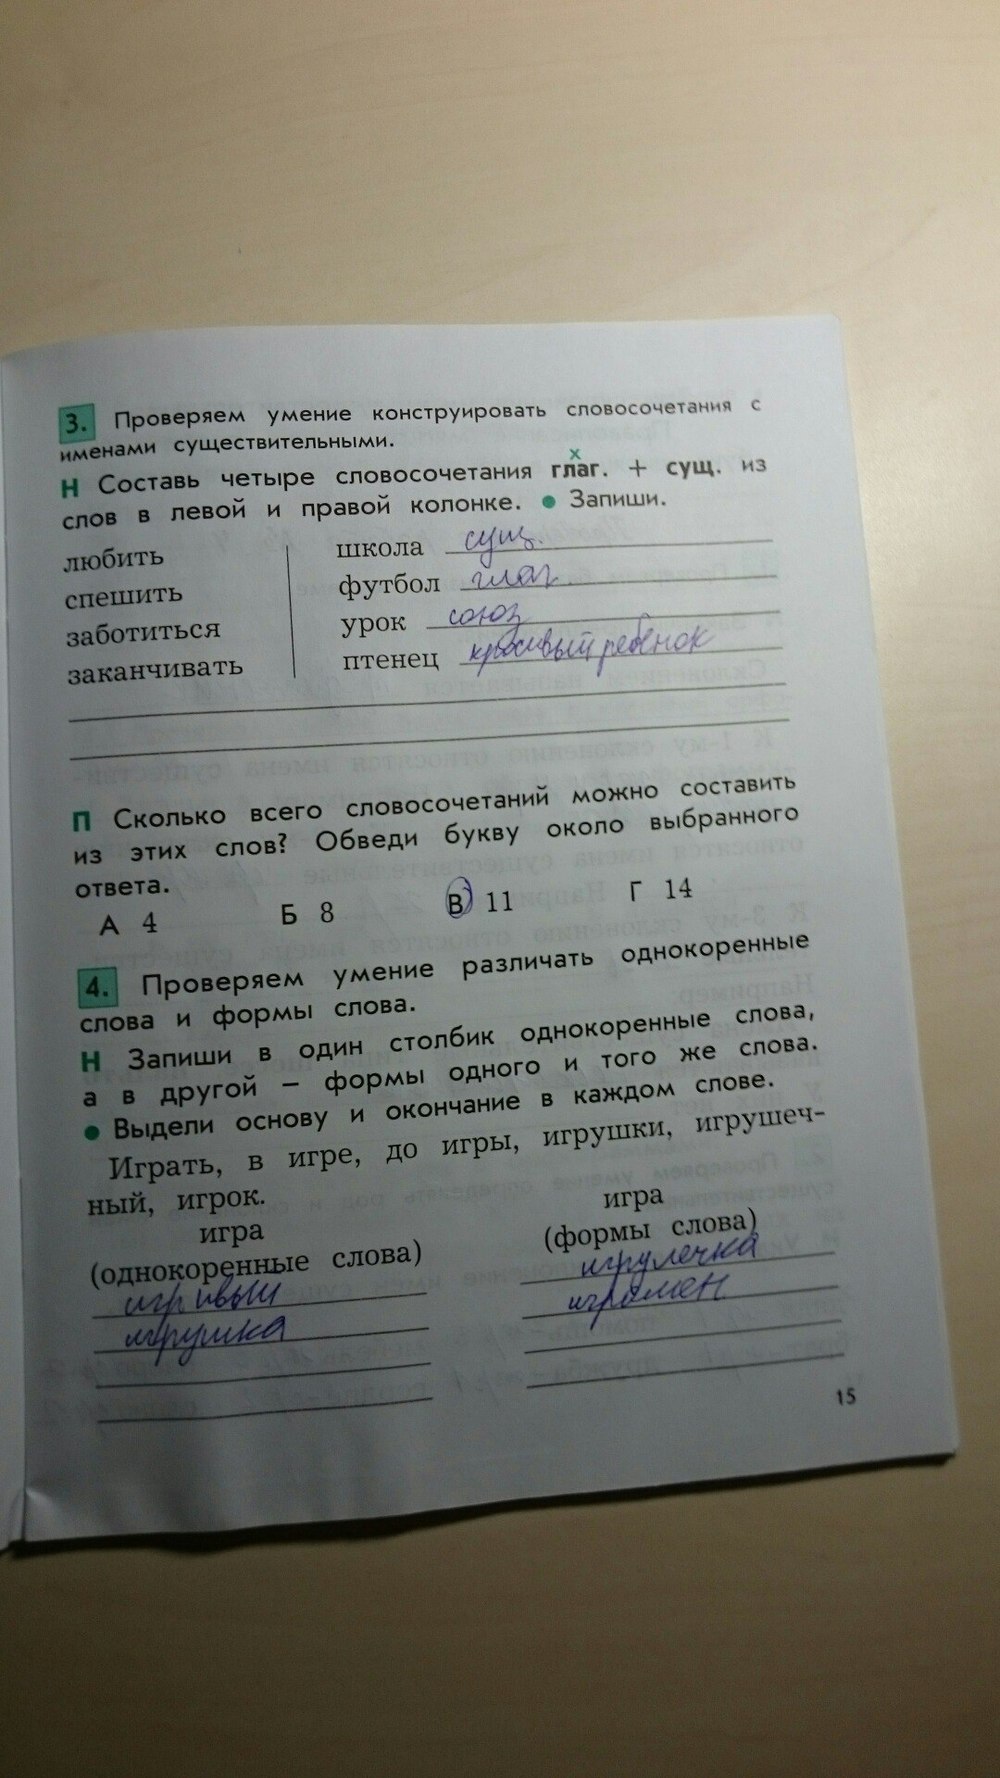 3. Проверяем умение конструировать словосочетания с
именами существительными.
х
Н Составь четыре словосочетания глаг. + сущ. из
слов в левой и правой колонке. ● Запиши.
любить школа сущ.
спешить футбол глаг.
заботиться урок союз
заканчивать птенец красивый ребенок
П Сколько всего словосочетаний можно составить
из этих слов? Обведи букву около выбранного
ответа.
А 4 Б 8 В 11 Г 14
4. Проверяем умение различать однокоренные
слова и формы слова.
Н Запиши в один столбик однокоренные слова,
а в другой – формы одного и того же слова.
● Выдели основу и окончание в каждом слове.
Играть, в игре, до игры, игрушки, игрушеч-
ный, игрок.
игра игра
(однокоренные слова) (формы слова)
игривый игрулечка
игрушка играмен
15